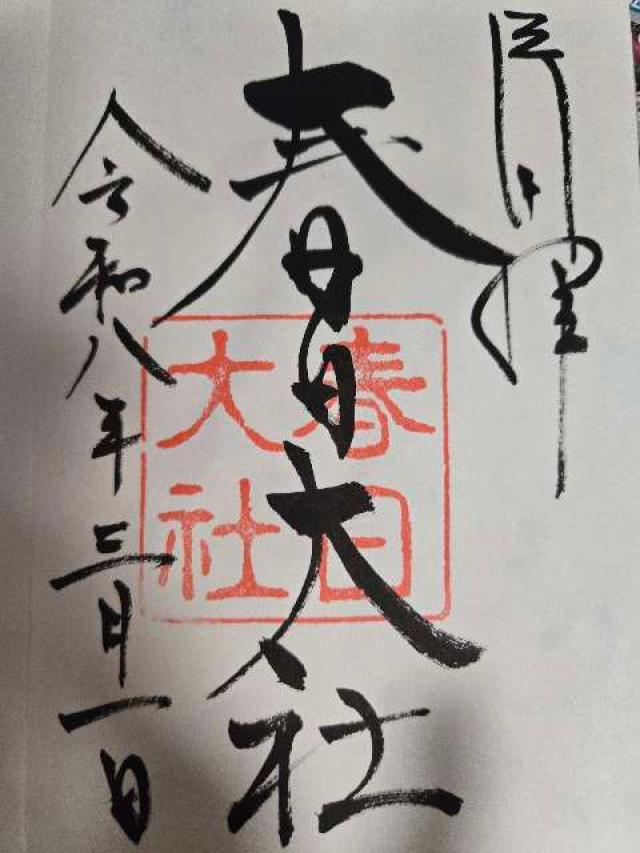 奉拝
春日大社
春日
大社
令和八年三月一日